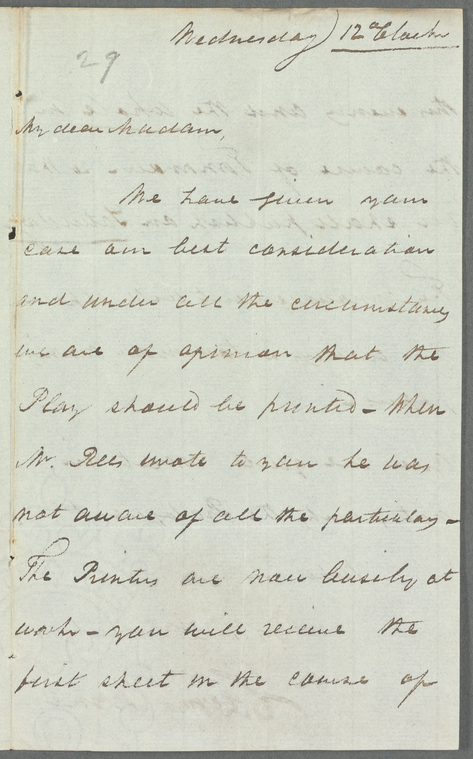 Wednesday 12 o'Clock
29
My dear Madam,
We have given your
case our best consideration
and under all the circumstances
we are of opinion that the
Play should be printed - When
Mr. Rees wrote to you he was
not aware of all the particulars -
The Printers are now busily at
work - you will receive the
first sheet in the course of